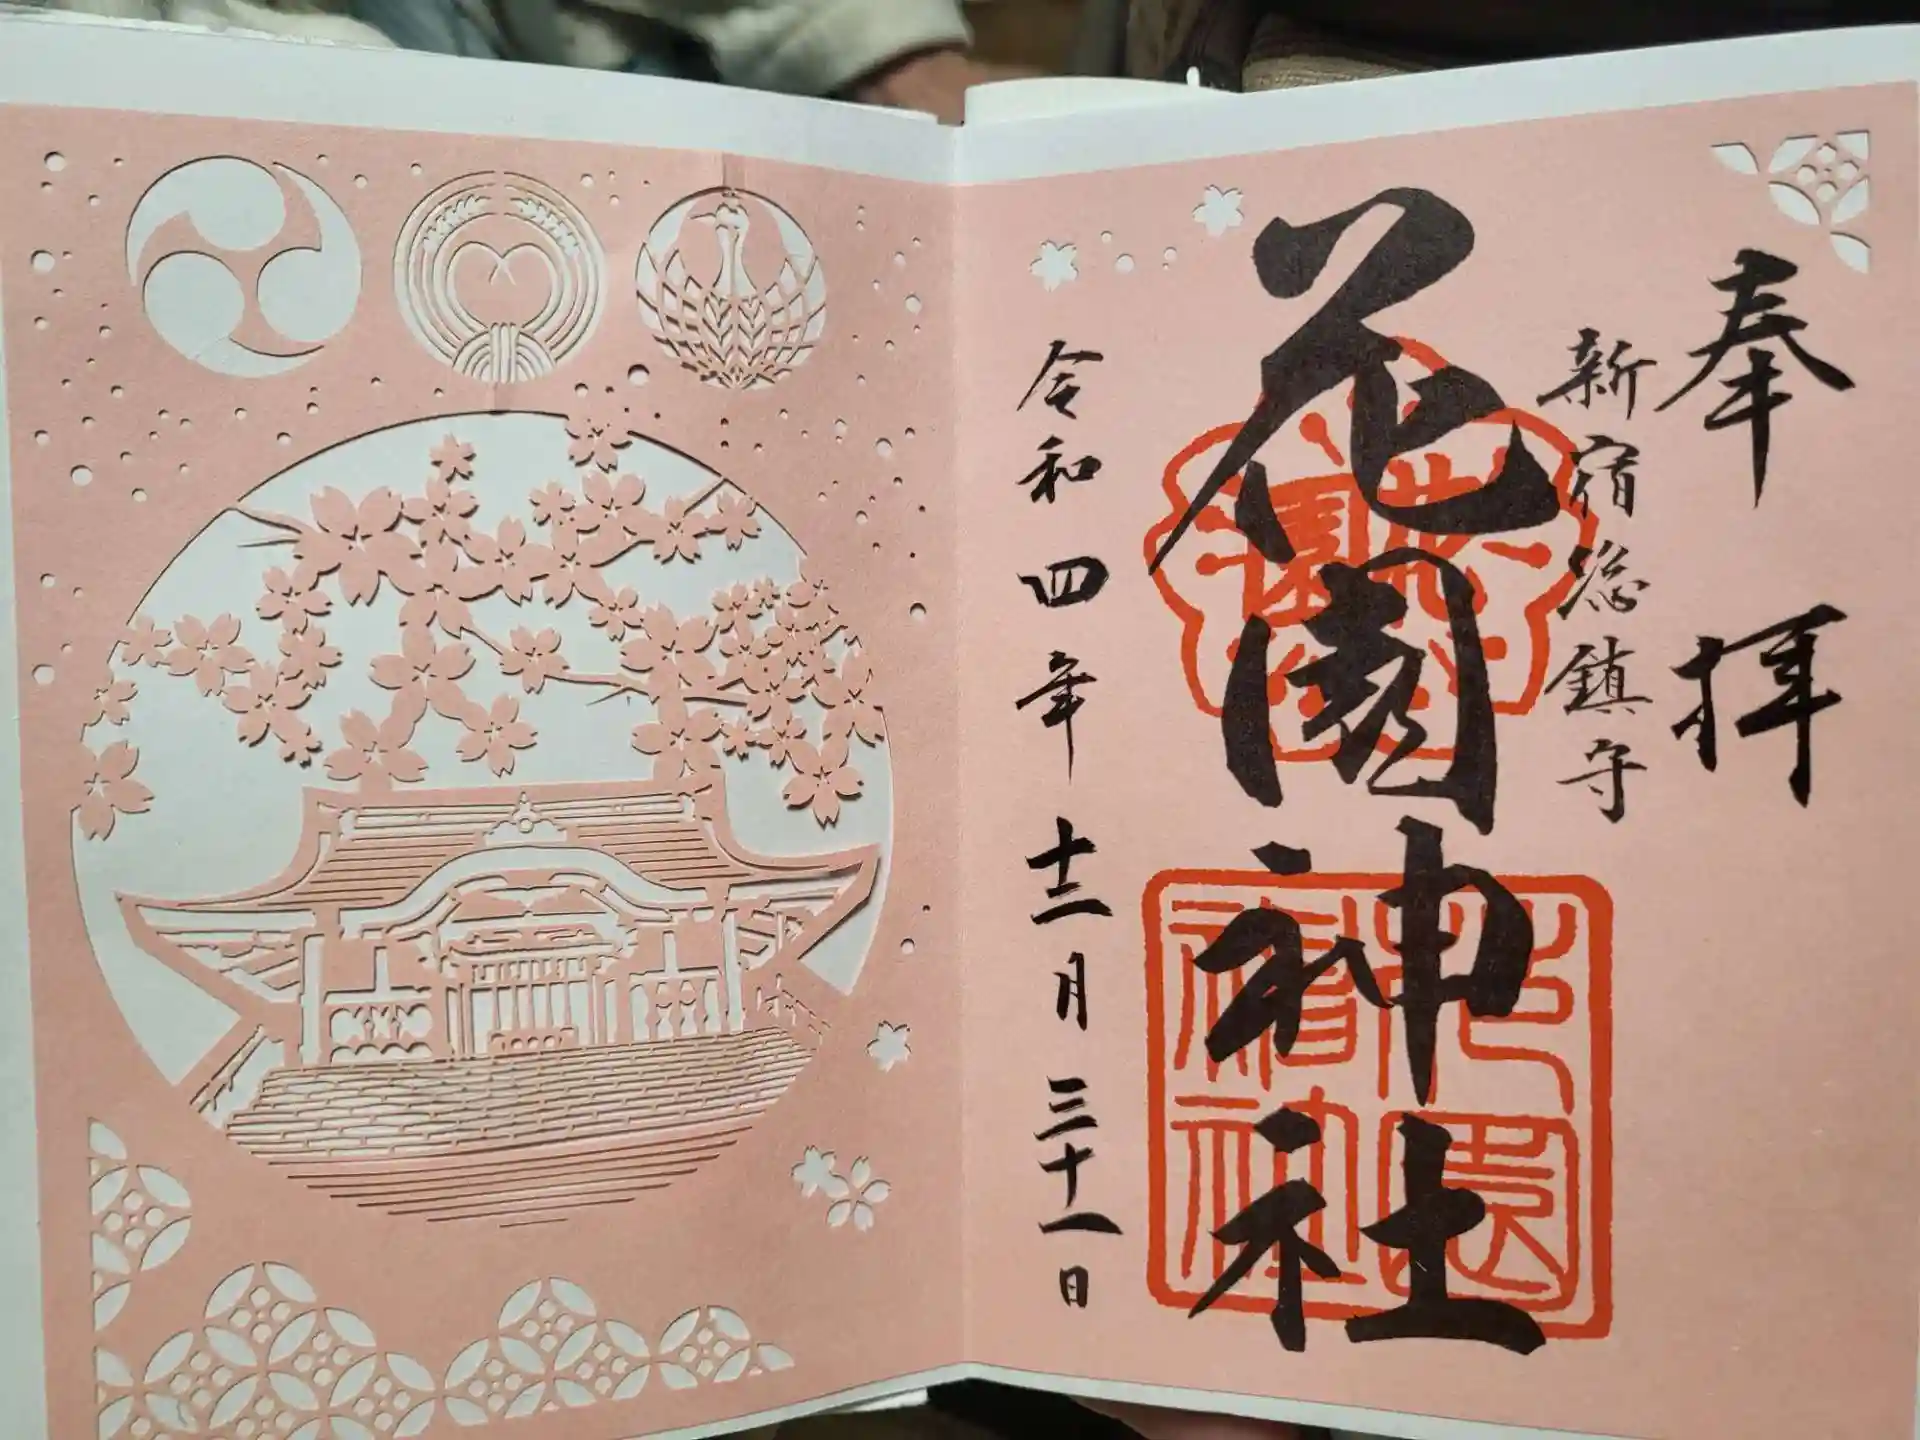 奉拝
新宿総鎮守
花園神社
令和四年十二月三十一日
花園
花園神社